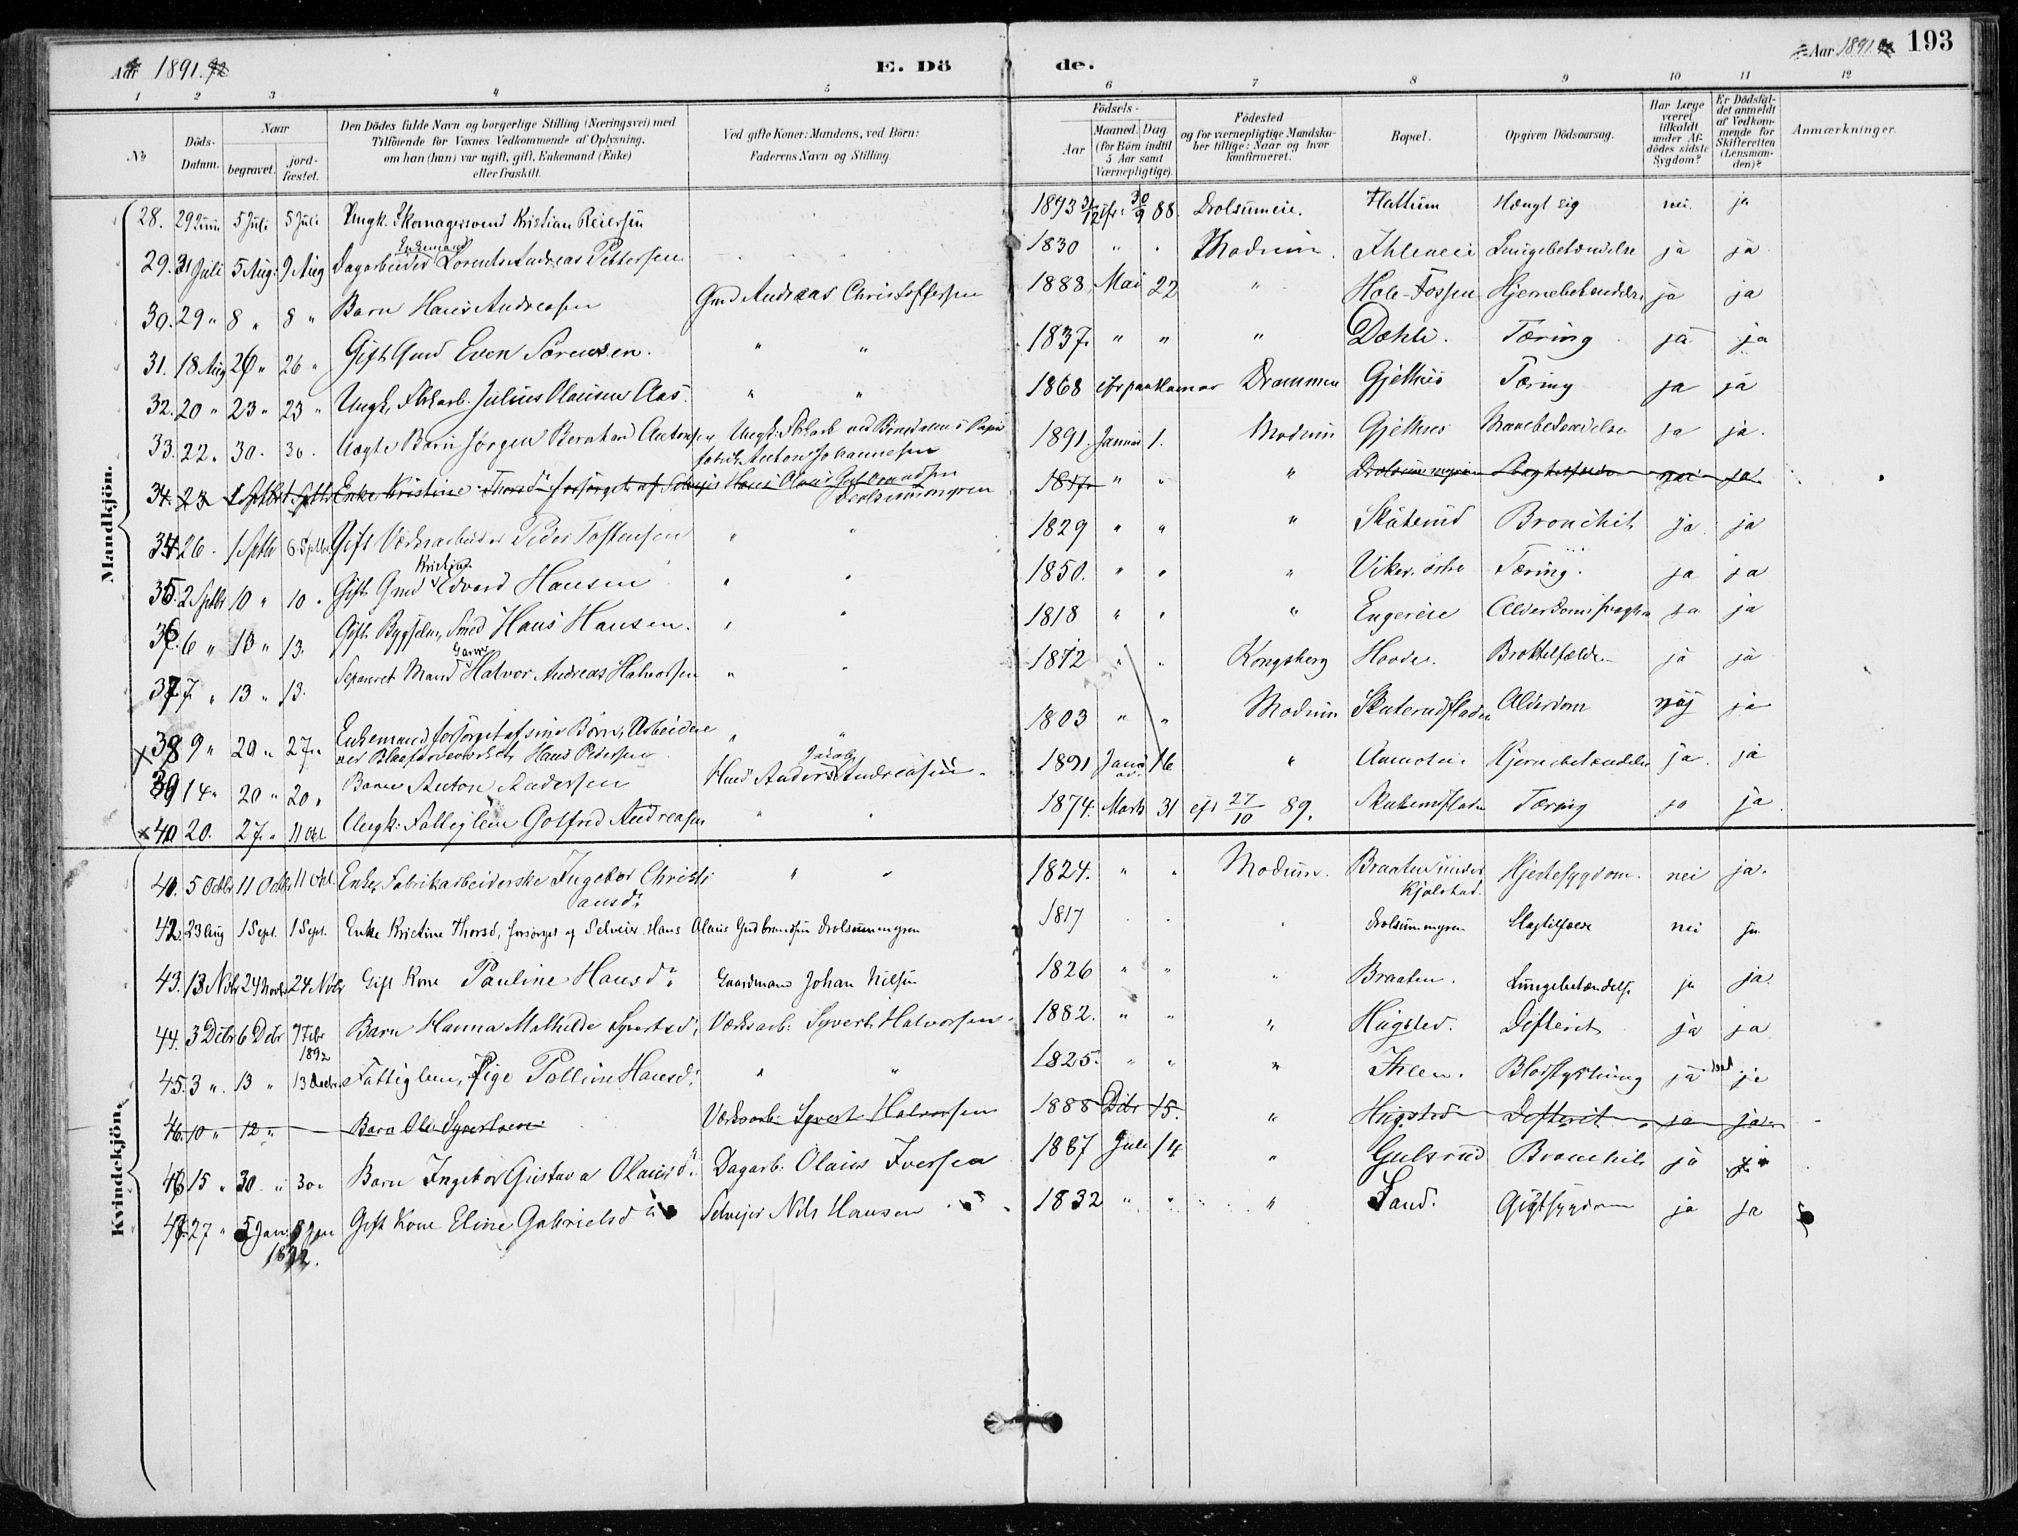 Aar 1891. 92
E. Dö de.
Aar 1891. 193
1 2 3 4 5 6 7 8 9 10 11 12
No
Döds-Datum.
Naar
begravet. jord-fæstet.
Den Dödes fulde Navn og borgerlige Stilling (Næringsvei) med
Tilföiende for Voxnes Vedkommende af Oplysning,
om han (hun) var ugift, gift, Enkemand (Enke)
eller fraskilt.
Ved gifte Koner: Mandens, ved Börn:
Faderens Navn og Stilling.
Födsels-
Aar
Maaned. Dag
(for Börn indtil
5 Aar samt
Værnepligtige).
Födested
og for værnepligtige Mandska-
ber tillige: Naar og hvor
konfirmeret.
Bopæl.
Opgiven Dödsaarsag.
Har Læge
været
tilkaldt
under Af-
dödes sidste
Sygdom?
Er Dödsfal-
det anmeldt
af Vedkom-
mende for
Skifteretten
(Lensman-
den)?
Anmærkninger.
Mandkjön.
28. 29 Juni 5 Juli 5 Juli Ungk. Skomagersvend Kristian Reiersen 1873 31/12 cfr: 30/9 88. Drolsumeie. Hattum Hængt sig nei ja
29. 31 Juli 5 Aug: 9 Aug Enkemand Dagarbeider Lorents Andreas Pettersen 1830 " " Modum. Ihleneie Lungebetændelse ja ja
30. 29 " 8 " 8 " Barn Hans Andreasen Gmd Andreas Christoffersen 1888 Mai 22 " Hole-Fossen Hjernebetændelse ja ja
31. 18 Aug 26 " 26 " Gift Gmd Even Sørensen. " " 1837. " " " Dæhli. Tæring ja ja
32. 20 " 23 " 23 " Ungk. Fbkarb. Julius Olausen Aas. " " 1868 Drammen Gjethus Tæring ja ja
33. 22. 30. 30. Uægte Barn Jørgen Bernhard Antonsen Ungk: Fbkarb
fabrik Anton Johannesen 1891. Januar 1. Modum Gjethus ja ja.
34. 23 1 Septbr 1 Septbr Enke Kristine Thorsd: forsørget af Selveier Hans Olaus Gulbrandsen
Drolsummyren 1817. " " " Drolsummyren Slagtilfælde nei ja
34 26. 1 Septbr 6 Septbr Gift Værksarbeider Peder Tostensen " " 1829 " " " Skuterud Bronchit ja ja
35. 2 Septbr 10 " 10 " Gift Gmd Kristian Edvard Hansen " " 1850. " " " Viker østre Tæring. ja ja
36. 6 " 13 " 13. Gift Bygselm, Smed Hans Hansen. " " 1818 " " " Engereie ja ja
37. 7 " 13 " 13. Separeret Mand Garver Halvor Andreas Halvorsen " " 1842 " " Kongsberg Hovde. Brottelfælde ja ja
x 38 9 " 20 " 27 " Enkemand forsørget af sine Børn, Arbeider
ved Blaafarveværket Hans Pedersen " " 1803 " " Modum Skuterudfladen Alderdom nei ja
39 14 " 20 " 20 " Barn Anton Andersen Hmd Anders Jakob Andreasen. 1891 Janu
ar 16 " Hjernebetændelse ja ja
x 40 20. 27. " 11 Okt. Ungk: Fattiglem Gotfred Andreasen " " 1874. Marts 31 cfr 27/10 89. Skuterudfladen Tæring ja ja
Kvindekjön.
41. 5 Octbr 11 Octbr 11 Okt. Enke, Fabrikarbeiderske Ingebor Christi
ansd: " " 1824. " " Modum. Braaten under
Kjølstad. Hjertesygdom. nei ja.
42. 23 Aug 1 Sept. 1 Sept. Enke Kristine Thorsd, forsørget af Selveier Hans Olaus Gudbrandsen Drolsummyren 1817 Drolsummyren Slagtilfælde nei ja
43. 13 Nvbr 24 Novbr 24 Nvbr Gift Kone Pauline Hansd: Gaardmand Johan Nilsen 1826 " " " Braaten. Lungebetændelse ja ja.
44. 3 Debr 6 Debr 7 Febr
1892 Barn Hanna Mathilde Syvertsd: Værksarb: Syvert Halvorsen 1882. " " " Hugsted. Difterit ja ja
45. 3 " 13 " 13 Decbr. Fattiglem, Pige Polline Hansd: " " 1825. " " " Ihlen. Blodstyrtning ja ja
46. 10 " 12 " Barn Ole Syvertsen Værksarb: Syvert Halvorsen 1888 Debr 15. " Hugsted Difterit ja ja
46 15 " 30 " 30 " Barn Ingebor Gustava Olausd: Dagarb: Olaus Iversen 1887 Juli 14 " Gulsrud Bronchit ja ja
47. 27 " 5 Jan: 5 Jan
1892. Gift Kone Eline Gabrielsd: Selveier Nils Hansen 1832 " " " Sand. Gigtsygdom ja ja